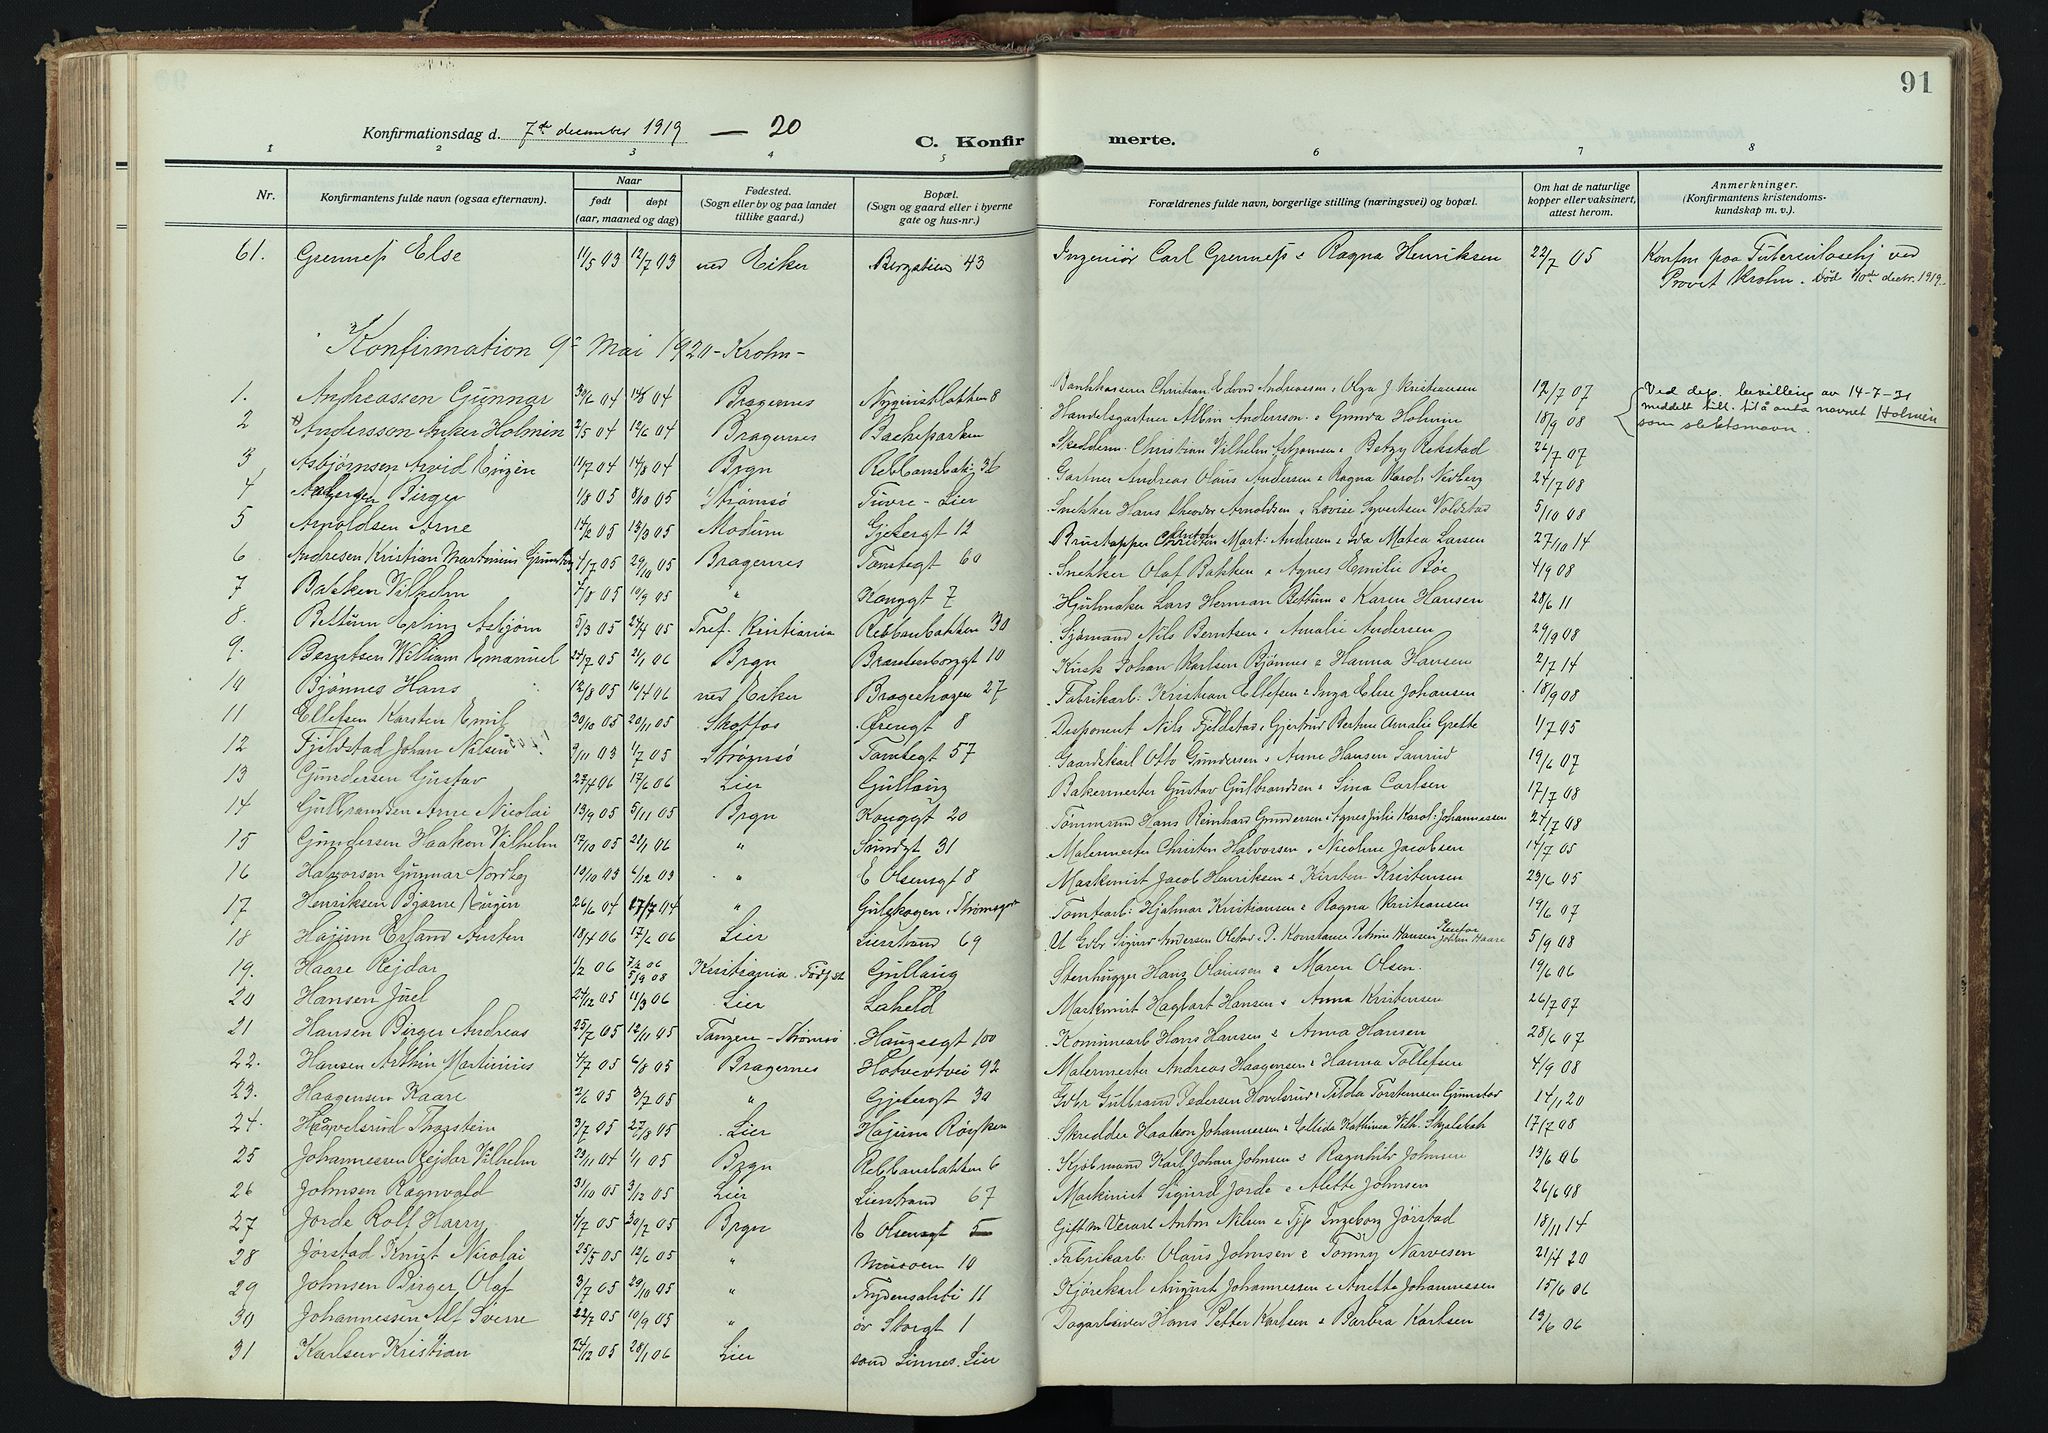 91
Konfirmationsdag d. 7de december 1919 — 20
C. Konfirmerte.
1 2 3 4 5 6 7 8
Nr. Konfirmantens fulde navn (ogsaa efternavn). Naar født døpt (aar, maaned og dag) Fødested. (Sogn eller by og paa landet tillike gaard.) Bopæl. (Sogn og gaard eller i byerne gate og hus-nr.) Forældrenes fulde navn, borgerlige stilling (næringsvei) og bopæl. Om hat de naturlige kopper eller vaksinert, attest herom. Anmerkninger. (Konfirmantens kristendoms-kundskap m. v.)
61. Grenness Else 11/5 03 12/7 03 ned Eiker Bergstien 43 Ingeniör Carl Grenness & Ragna Henriksen 22/7 05 Konfm paa Tuberculosehj ved
Provst Krohn. Död 10de decbr. 1919.
Konfirmation 9de Mai 1920 - Krohn -
1. Andreassen Gunnar 30/6 04 14/8 04 Bragernes Nyqvistbakken 8 Bankkasserer Christian Edvard Andreassen & Olga J Kristiansen 12/7 07 Ved dep. bevilling av 14-7-31
2 Anderssen Anker Holmin 2/5 04 12/6 04 Bragernes Bacheparken Handelsgartner Albin Anderssen & Gunda Holmin 18/9 08 meddelt till. til å anta navnet Holmén
som slektsnavn.
3 Asbjørnsen Arvid Eugen 11/7 04 14/8 04 Brgn Rebbansbak. 36 Skredderm. Christian Vilhelm Asbjørnsen & Betzy Rekstad 26/7 07
4 Andersen Birger 1/8 05 8/10 05 Strømsø Tuvre - Lier Gartner Andreas Olaus Andersen & Ragna Karol. Nedberg 24/7 08
5 Arnoldsen Arne 14/2 05 13/3 05 Modum Gjetergt 12 Snekker Hans Theodor Arnoldsen & Lovise Syvertsen Voldstad 5/10 08
6. Andresen Kristian Martinius 1/7 05 29/10 05 Bragernes Tomtegt 60 Brustapper Mart: Andresen & Ida Matea Larsen 27/10 14
7 Bakken Vilhelm 1/8 05 10/9 05 " Konggt 7 Snekker Olaf Bakken & Agnes Emilie Böe 4/9 08
8. Bettum Erling Asbjørn 5/3 05 24/4 05 Tref. Kristiania Rebbanbakken 30 Hjulmaker Lars Herman Bettum & Karen Hansen 28/6 11
9. Berntsen William Emanuel 24/7 05 21/1 06 Brgn Brandenborggt 10 Sjømand Nils Berntsen & Amalie Andersen 29/9 08
10 Bjønnes Hans 12/8 05 16/4 06 ned Eiker Bragerhagen 27 Kusk Johan Karlsen Bjønnes & Hanna Hansen 2/7 14
11 Ellefsen Karsten Emil 30/10 05 20/11 05 Skotfos Örengt 8 Fabrikarb: Kristian Ellefsen & Inga Elise Johansen 18/9 08
12 Fjeldstad Johan Nilsen 9/11 03 1/7 05 Strømsø Tomtegt 57 Disponent Nils Fjeldstad & Gjertrud Bertine Amalie Grette 1/7 05
13 Gundersen Gustav 27/4 06 17/6 06 Lier Gullaug Gaardskarl Otto Gundersen & Anne Hansen Saurud 19/6 07
14 Gulbrandsen Arne Nicolai 13/9 05 5/11 05 Brgn Konggt 20 Bakermester Gustav Gulbrandsen & Sina Carlsen 17/7 08
15 Gundersen Haakon Vilhelm 17/10 05 21/1 06 " Sundgt 31 Tømmermd Hans Reinhard Gundersen & Agnes Julie Karol: Johannessen 24/7 08
16 Halvorsen Gunnar Nordby 10/10 03 6/12 03 " E Olsensgt 8 Malermester Christen Halvorsen & Nicoline Jacobsen 14/7 05
17 Henriksen Bjarne Eugen 26/6 04 17/7 04 " Gulskogen, Strømsgt Maskinist Jacob Henriksen & Kirsten Kristensen 23/6 05
18 Hajum Erland Austen 18/4 06 17/6 06 Lier Lierstrand 69 Tomtearb: Hjalmar Kristiansen & Ragna Kristiansen 19/6 07
19. Haare Rejdar 1/2 06 7/2 06 5/9 08 Kristiania Födsst Gullaug U Gbr Sigurd Andersen Olstad & P. Konstance Petrine Hansen Johan Haare 5/9 08
20 Hansen Juel 24/12 05 11/3 06 Lier Laheld Stenhugger Hans Olaussen & Maren Olsen. 19/6 06
21 Hansen Birger Andreas 25/7 05 12/11 05 Tangen - Strømsö Haugesgt 100 Maskinist Hagbart Hansen & Anna Kristensen 26/7 07
22. Hansen Arthur Martinius 4/7 05 6/8 05 Bragernes Hotvedtvei 92 Kommunearb Hans Hansen & Anna Hansen 28/6 07
23. Haagensen Kaare 2/6 05 3/7 05 " Gjetergt 30 Malermester Andreas Haagensen & Hanna Tollefsen 4/9 08
24. Haavelsrud Thorstein 3/7 05 27/8 05 Lier Hajum Røysken Gbr Gulbrand Pedersen Hovelsrud & Tilda Torstensen Grimstad 14/1 20
25 Johannessen Rejdar Vilhelm 23/11 04 1/1 05 Brgn Rebbansbakken 6 Skredder Haakon Johannessen & Kathinca Vilh. Skjelsbak 17/7 08
26 Johnsen Ragnvald 31/10 05 3/12 05 Lier Lierstrand 67 Kjøbmand Karl Johan Johnsen & Ragnhild Johnsen 13/6 06
27 Jorde Rolf Harry 4/7 05 30/7 05 Brgn E Olsensgt 5 Maskinist Sigurd Jorde & Alette Johnsen 26/6 08
28 Jørstad Knut Nicolai 25/5 05 12/6 05 " Museen 10 Gift m Anton Nilsen & Tjp Ingeborg Jørstad 18/11 14
29 Johnsen Birger Olaf 3/7 05 29/10 05 " Frydensalsbk 11 Fabrikarb: Olaus Johnsen & Tonny Narvesen 21/4 20
30 Johannessen Alf Sverre 22/7 05 10/9 05 " öv Storgt 1 Kjørekarl August Johannessen & Anette Johannessen 15/6 06
31 Karlsen Kristian 24/12 05 28/1 06 Lier sönd Linnes. Lier Dagarbeider Hans Petter Karlsen & Barbra Karlsen 13/6 06